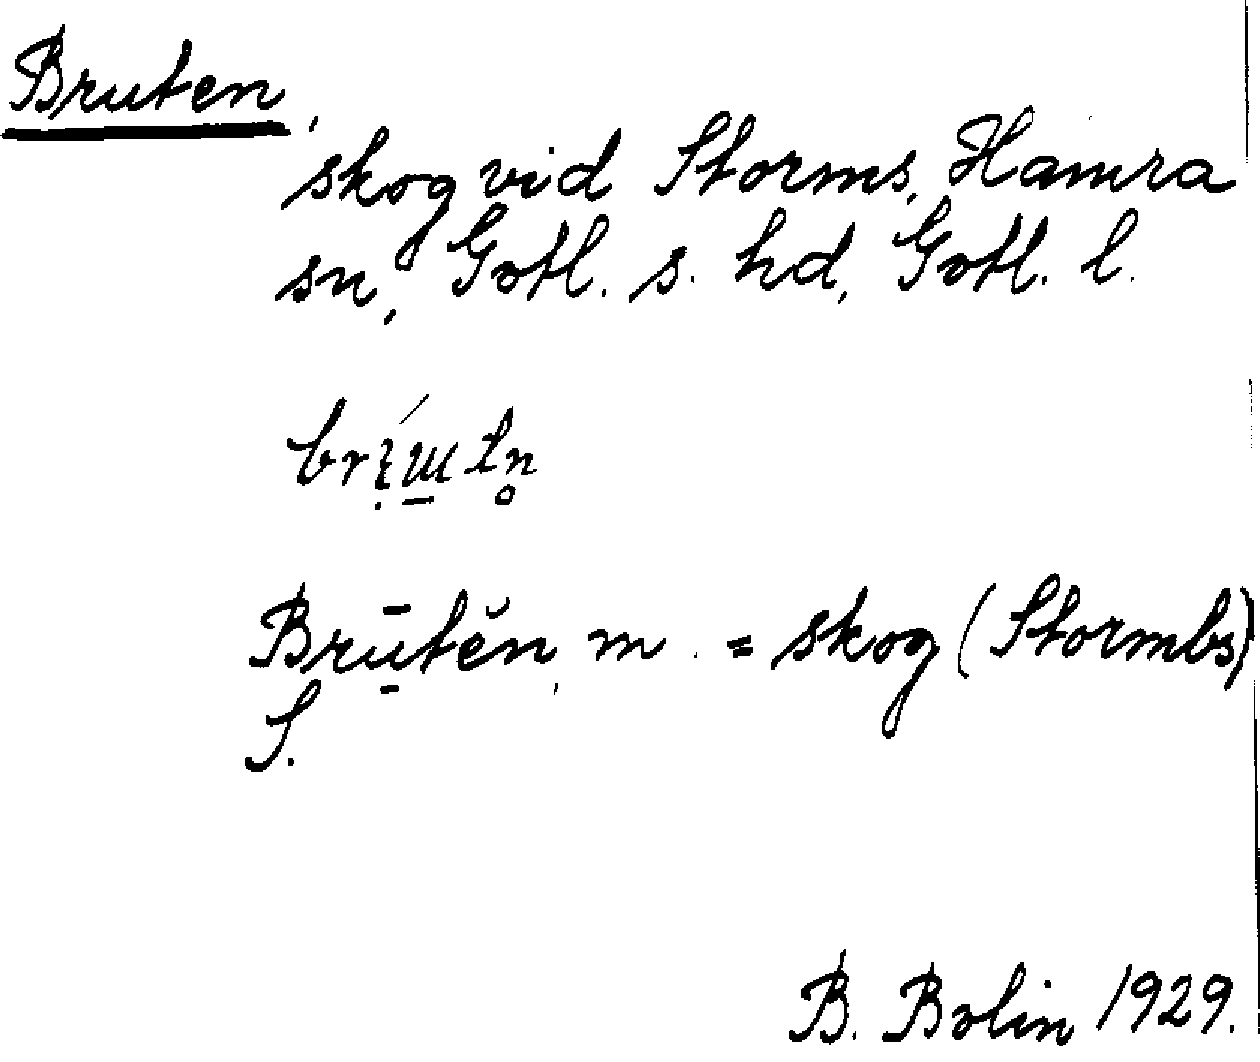 Bruten,
skog vid Storms, Hamra
sn, Gotl. s. hd, Gotl. l.
Brṳ̄tĕn, m. = skog (Stormbs)
S.
B. Bolin 1929.